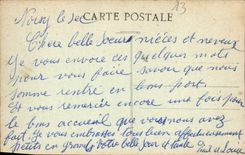 Noisy le sec 13
CARTE POSTALE
Chère belle Soeur nièces et neveux
Je vous envoie ces quelques mots
pour vous faire savoir que nous
somme rentré en bon port.
Et vous remercie encore une fois pour
le bon accueil que vous nous avez
fait. Je vous embrasse tous bien affectueusement
petits en grands votre belle Soeur et tante
Paul et Louise